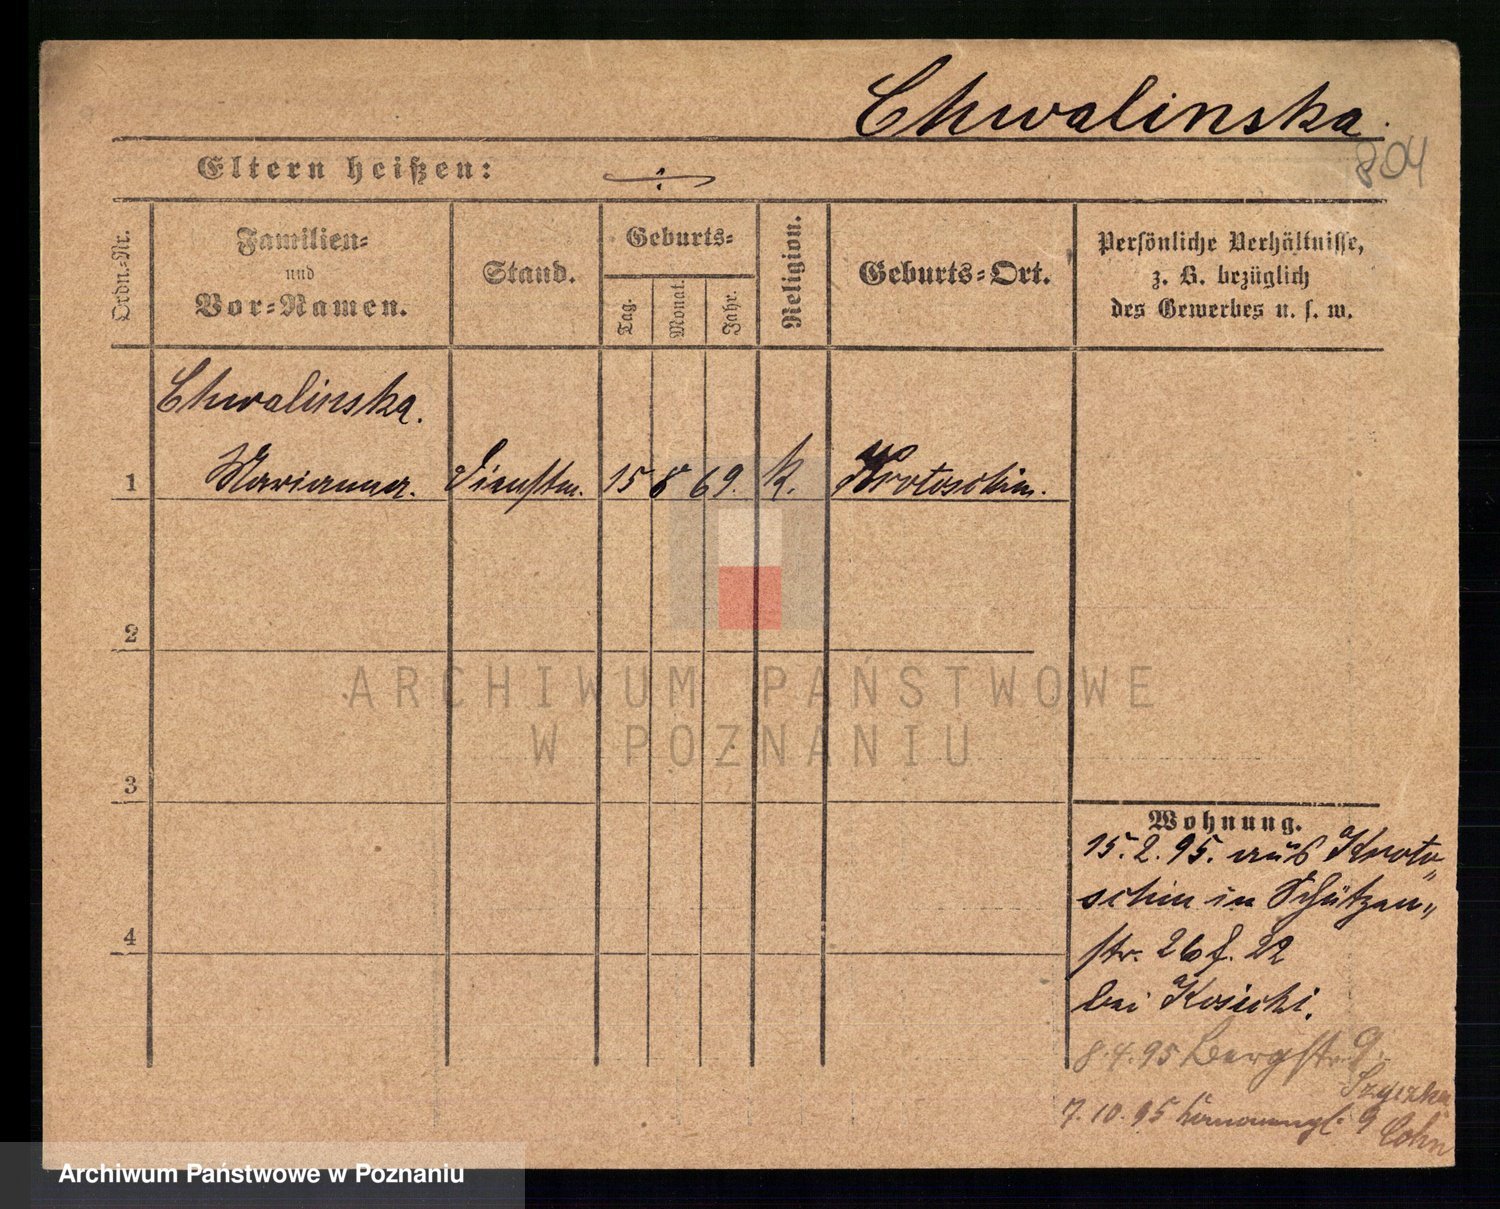 Chwalinska.
804
Eltern heißen:
Ordn.-Nr.
Familien-
und
Vor-Namen.
Stand.
Geburts-
Tag.
Monat.
Jahr.
Religion.
Geburts-Ort.
Persönliche Verhältnisse,
z. B. bezüglich
des Gewerbes u. s. w.
Chwalinska.
1 Marianna. Dienstm. 15 8 69. k. Krotoschin.
2
3
4
ARCHIWUM PAŃSTWOWE
W POZNANIU
Wohnung.
15.2.95. aus Kroto„
schin in Schützen„
str. 26 f. 22
bei Kosicki.
8.4.95 Bergstr 9.
7.10.95 9 Cohn
Archiwum Państwowe w Poznaniu